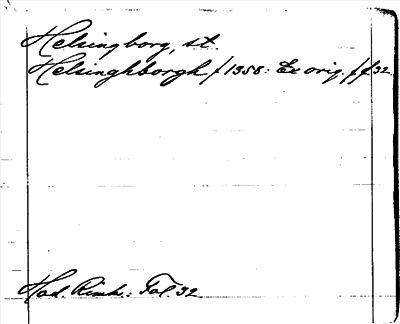 Helsingborg, st.
Helsinghborgh / 1358: Ex orig. / f 32
Had. Rimk.: Fol. 32